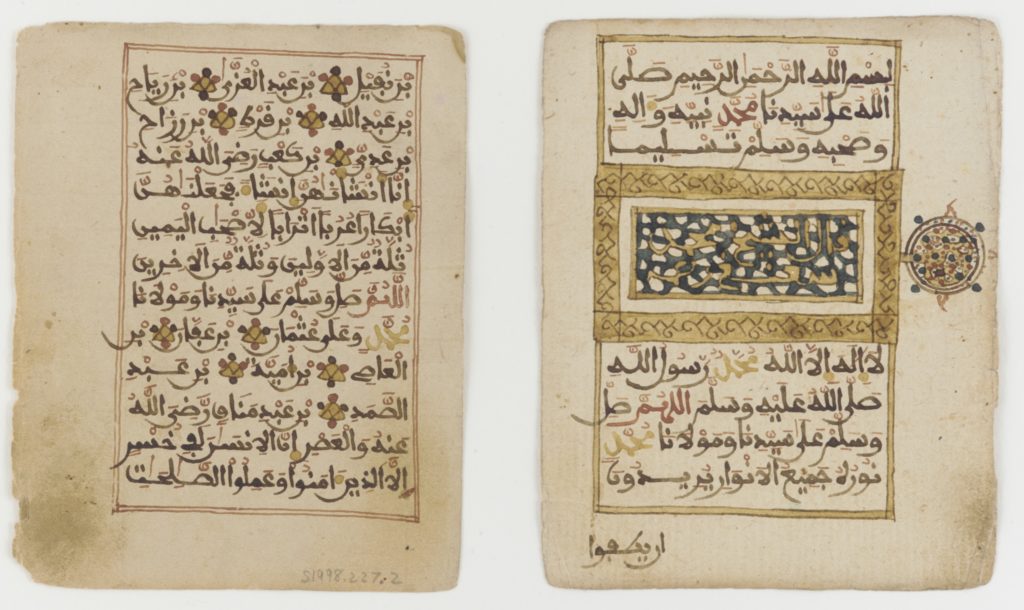 بسم الله الرحمن الرحيم صلى
الله على سيدنا محمد نبيه واله
وصحبه وسلم تسليما
لا اله الا الله محمد رسول الله
صلى الله عليه وسلم اللهم صل
وسلم على سيدنا ومولانا محمد
نوره جميع الانوار يريدون
ان يطفوا
بن نفيل بن عبد العزى بن رياح
بن عبد الله بن قرط بن رزاح
بن عدي بن كعب رضي الله عنه
انا انشاناهن انشاء فجعلناهن
ابكارا عربا اترابا لاصحب اليمين
ثلة من الاولين وثلة من الاخرين
اللهم صل وسلم على سيدنا ومولانا
محمد وعلى عثمان بن عفان بن
ابي العاص بن امية بن عبد
الصمد بن عبد مناف رضي الله
عنه والعصر ان الانسن لفي خسر
الا الذين امنوا وعملوا الصلحت
S1998.227.2